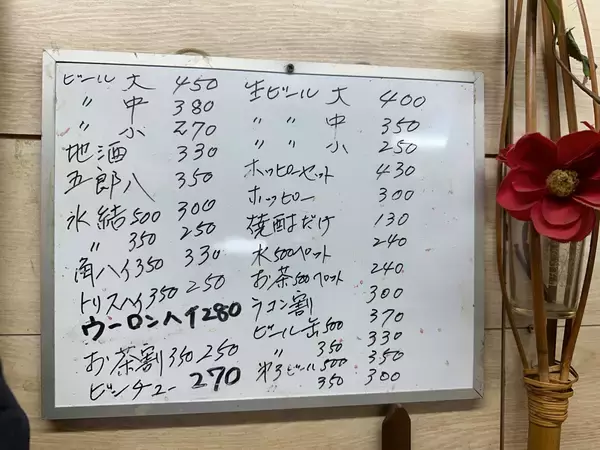 ビール 大 450
〃 中 380
〃 小 270
地酒 330
五郎八 350
氷結500 300
〃 350 250
角ハイ350 330
トリスハイ350 250
ウーロンハイ280
お茶割350 250
ビンチュー 270
生ビール 大 400
〃 〃 中 350
〃 〃 小 250
ホッピーセット 430
ホッピー 300
焼酎だけ 130
水500ペット 240
お茶500ペット 240
ラコン割 300
ビール缶500 370
〃 350 330
第3ビール500 350
350 300